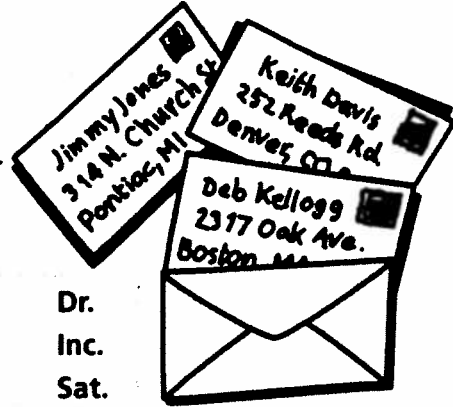 Jimmy Jones
314 N. Church St
Pontiac, MI
Keith Davis
252 Reeds Rd.
Denver,
Deb Kellogg
2317 Oak Ave.
Boston
Dr.
Inc.
Sat.